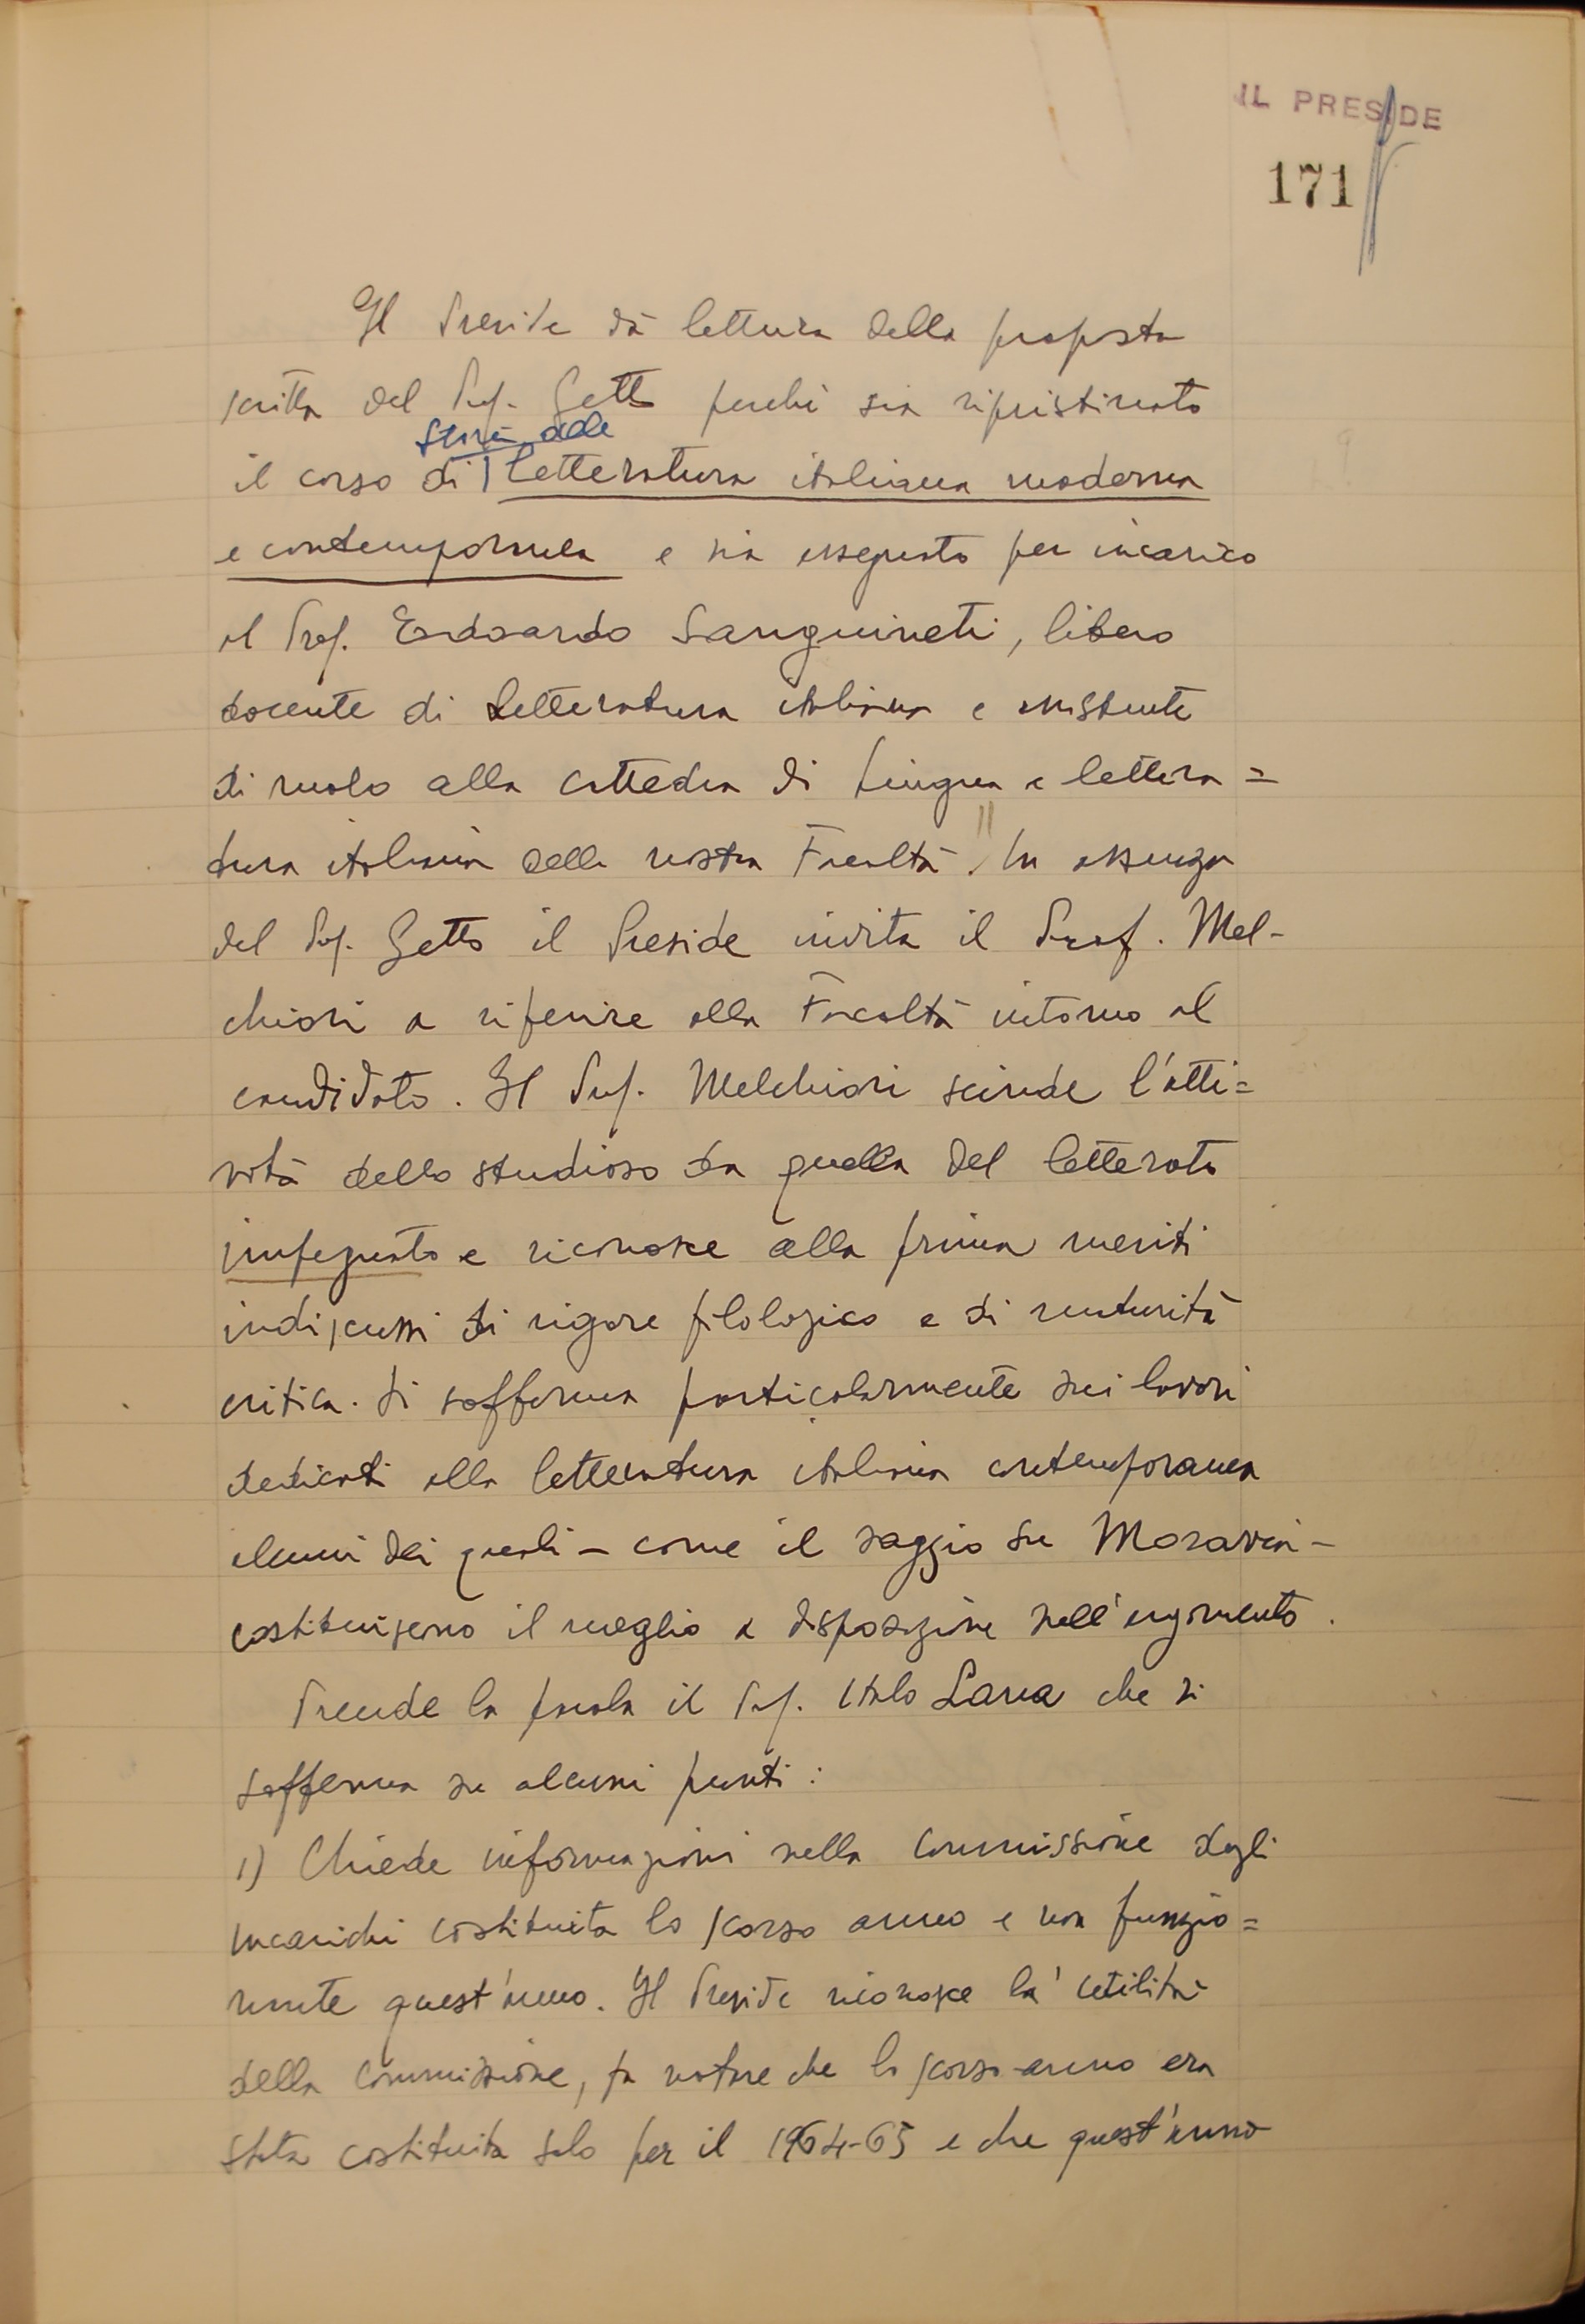 IL PRESIDE
171
Il Preside dà lettura della proposta
scritta del Prof. Getto perché sia ripristinato
Storia della
il corso di Letteratura italiana moderna
e contemporanea e sia assegnato per incarico
al Prof. Edoardo Sanguineti, libero
docente di Letteratura italiana e assistente
di ruolo alla cattedra di Lingua e lettera=
tura italiana della nostra Facoltà. In assenza
del Prof. Getto il Preside invita il Prof. Mel-
chiori a riferire alla Facoltà intorno al
candidato. Il Prof. Melchiori scinde l'atti=
vità dello studioso da quella del letterato
impegnato e riconosce alla prima meriti
indiscussi di rigore filologico e di maturità
critica. Si sofferma particolarmente sui lavori
dedicati alla letteratura italiana contemporanea
alcuni dei quali - come il saggio su Moravia -
costituiscono il meglio a disposizione sull'argomento.
Prende la parola il Prof. Italo Lana che si
sofferma su alcuni punti:
1) Chiede informazioni sulla Commissione degli
incarichi costituita lo scorso anno e non funzio=
nante quest'anno. Il Preside riconosce la utilità
della Commissione, fa notare che lo scorso anno era
stata costituita solo per il 1964-65 e che quest'anno